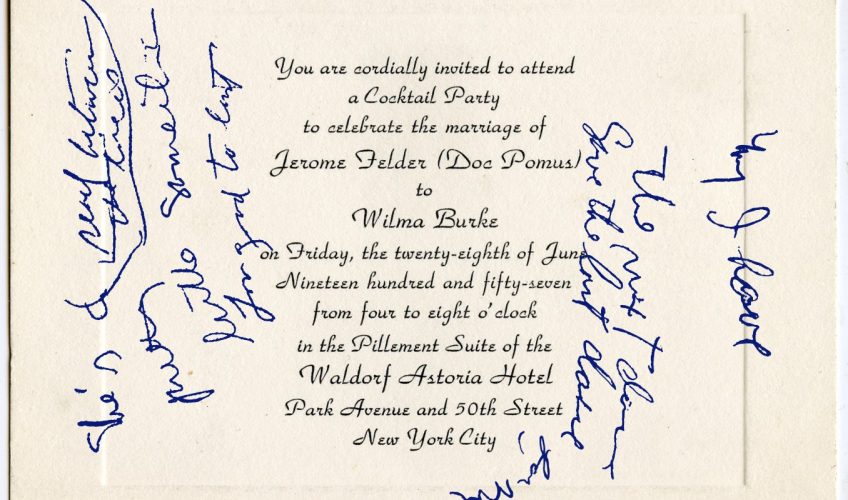 You are cordially invited to attend
a Cocktail Party
to celebrate the marriage of
Jerome Felder (Doc Pomus)
to
Wilma Burke
on Friday, the twenty-eighth of June
Nineteen hundred and fifty-seven
from four to eight o'clock
in the Pillement Suite of the
Waldorf Astoria Hotel
Park Avenue and 50th Street
New York City
between
the
to
The next
Save the last dance
for me
I have